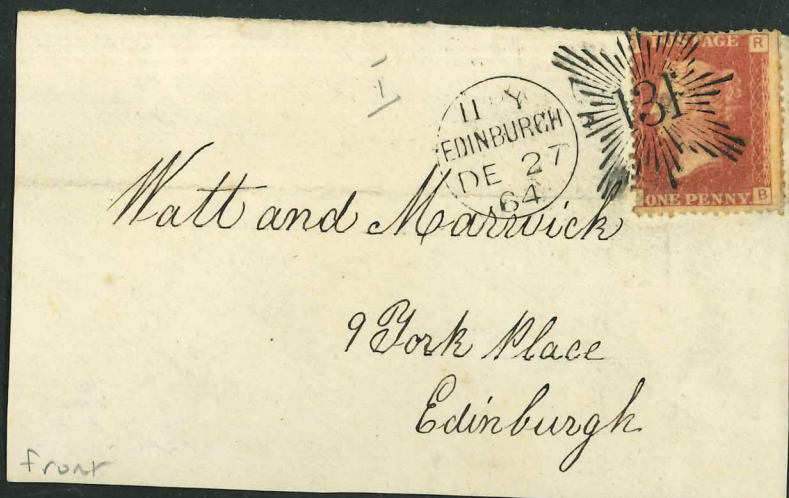 AGE R
11 Y
EDINBURGH
DE 27
64
131
ONE PENNY B
Watt and Marwick
9 York Place
Edinburgh
front